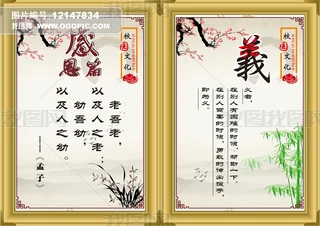 图片编号:12147834
校园文化
感恩篇
老吾老，
以及人之老；
幼吾幼，
以及人之幼。
——《孟子》
校园文化
義
义者，
在别人有困难的时候，帮助一下
在别人需要的时候，勇敢的伸出援手，
即为义。